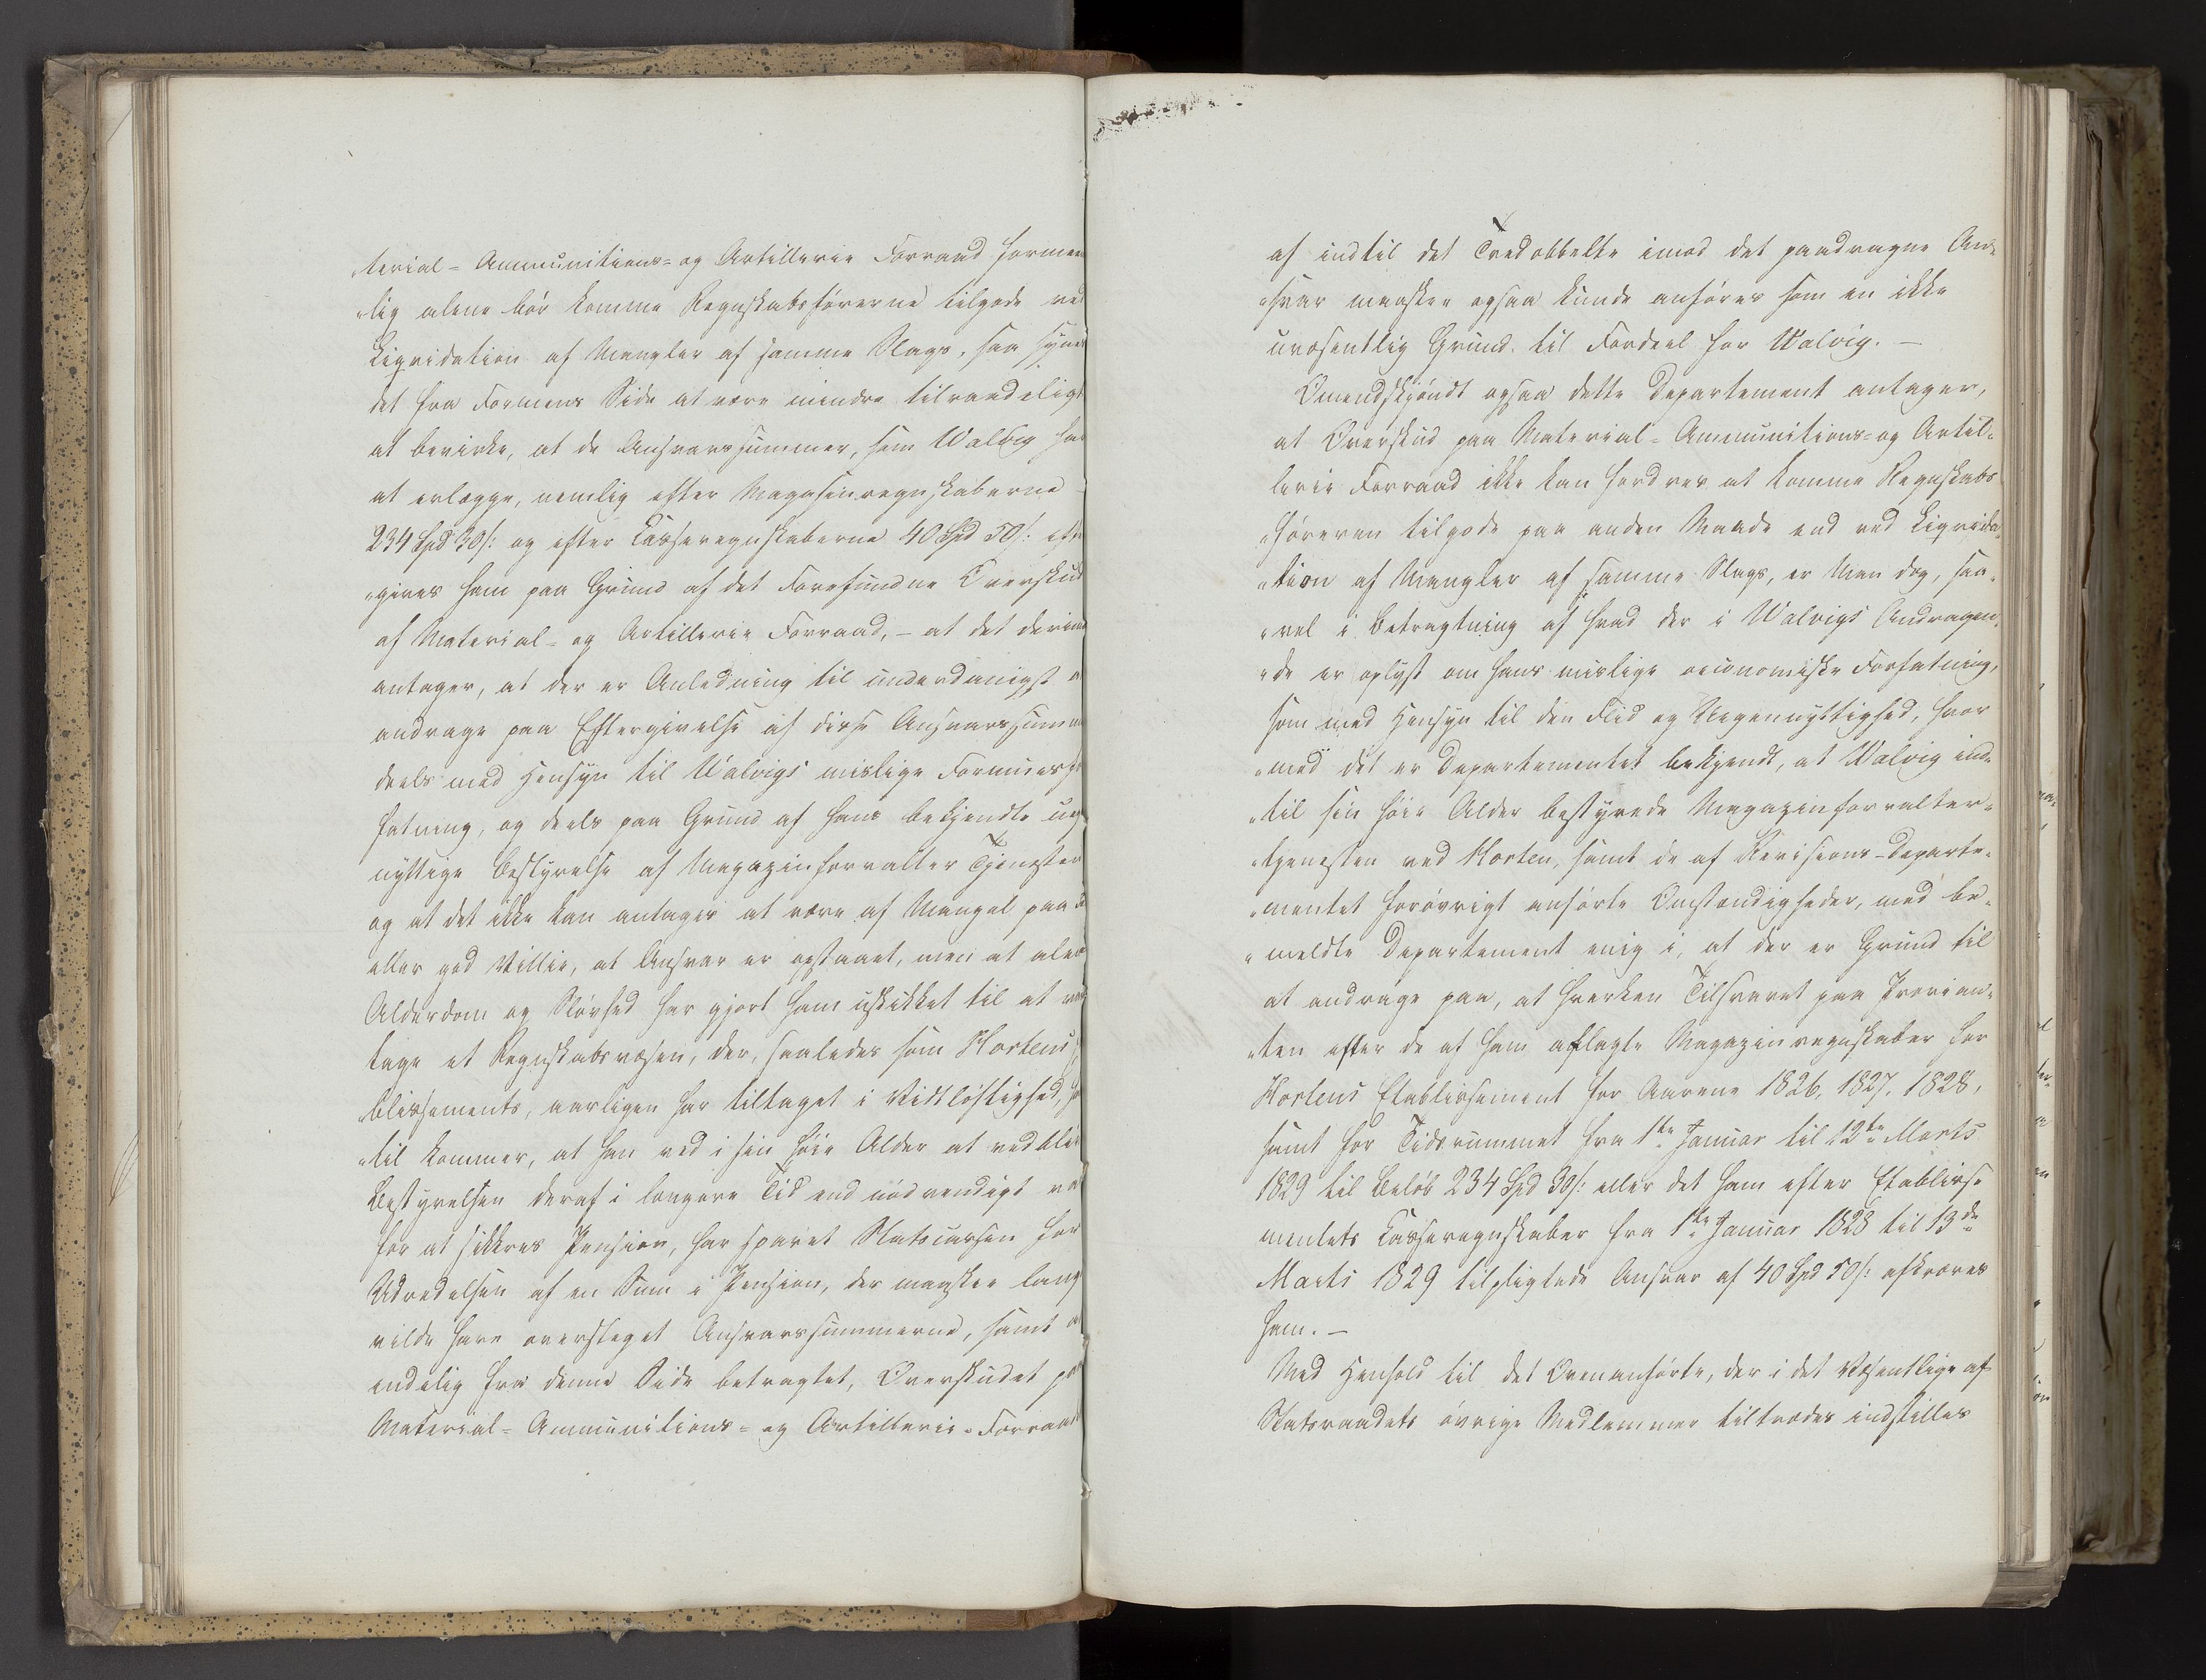 „terial- Ammunitions- og Artillerie Forraad formen
„lig alene bør komme Regnskabsførerne tilgode ved
Liqvidation af Mangler af samme Slags, saa synes
det fra Formens Side at være mindre tilraadeligt
at bevirke, at de Ansvarssummer, som Walvig har
at erlægge, nemlig efter Magasinregnskaberne
234 Spd 30 s: og efter Casseregnskaberne 40 Spd 50 s: efter
„gives ham paa Grund af det Forefundne Overskud
af Material- og Artillerie Forraad, – at det derimod
antager, at der er Anledning til underdanigst at
andrage paa Eftergivelse af disse Ansvarssummer
deels med Hensyn til Walvigs mislige Formues
fatning, og deels paa Grund af hans bekjendte uegen
nyttige Bestyrelse af Magazinforvalter Tjenesten
og at det ikke kan antages at være af Mangel paa
eller god Villie, at Ansvar er opstaaet, men at alene
Alderdom og Sløvhed har gjort ham uskikket til at
tage et Regnskabsvæsen, der, saaledes som Hortens
blissements, aarligen har tiltaget i Vidtløftighed,
„til kommer, at han ved i sin høie Alder at vedblive
Bestyrelsen deraf i længere Tid end nødvendigt var
for at sikkres Pension, har sparet Statscassen for
Udredelsen af en Sum i Pension, der maaskee langt
vilde have oversteget Ansvarssummerne, samt at
endelig fra denne Side betragtet, Overskudet paa
Material- Ammunitions- og Artillerie-Forraad
af indtil det Tredobbelte imod det paadragne An-
„svar maaskee ogsaa kunde anføres som en ikke
uvæsentlig Grund til Fordeel for Walvig. –
Omendskjøndt ogsaa dette Departement antager,
at Overskud paa Material- Ammunitions- og Artil-
lerie Forraad ikke kan fordres at komme Regnskabs
„føreren tilgode paa anden Maade end ved Liqvida-
„tion af Mangler af samme Slags, er Man dog, saa-
„vel i Betragtning af hvad der i Walvigs Andragen-
„de er oplyst om hans mislige oeconomiske Forfatning,
som med Hensyn til den Flid og Uegennyttighed, hvor
„med det er Departementet bekjendt, at Walvig ind-
„til sin høie Alder bestyrede Magazinforvalter-
„tjenesten ved Horten, samt de af Revisions-Departe-
„mentet forøvrigt anførte Omstændigheder, med be-
„meldte Departement enig i, at der er Grund til
at andrage paa, at hverken Tilsvaret paa Provian-
„ten efter de af ham aflagte Magazinregnskaber for
Hortens Etablissement for Aarene 1826, 1827, 1828,
samt for Tidsrummet fra 1ste Januar til 12te Marts
1829 til Beløb 234 Spd 30 s: eller det ham efter Etablisse
mentets Casseregnskaber fra 1ste Januar 1828 til 13de
Marts 1829 tilpligtede Ansvar af 40 Spd 50 s: afkræves
ham. –
Med Henhold til det Ovenanførte, der i det Væsentlige af
Statsraadets øvrige Medlemmer tiltrædes indstilles